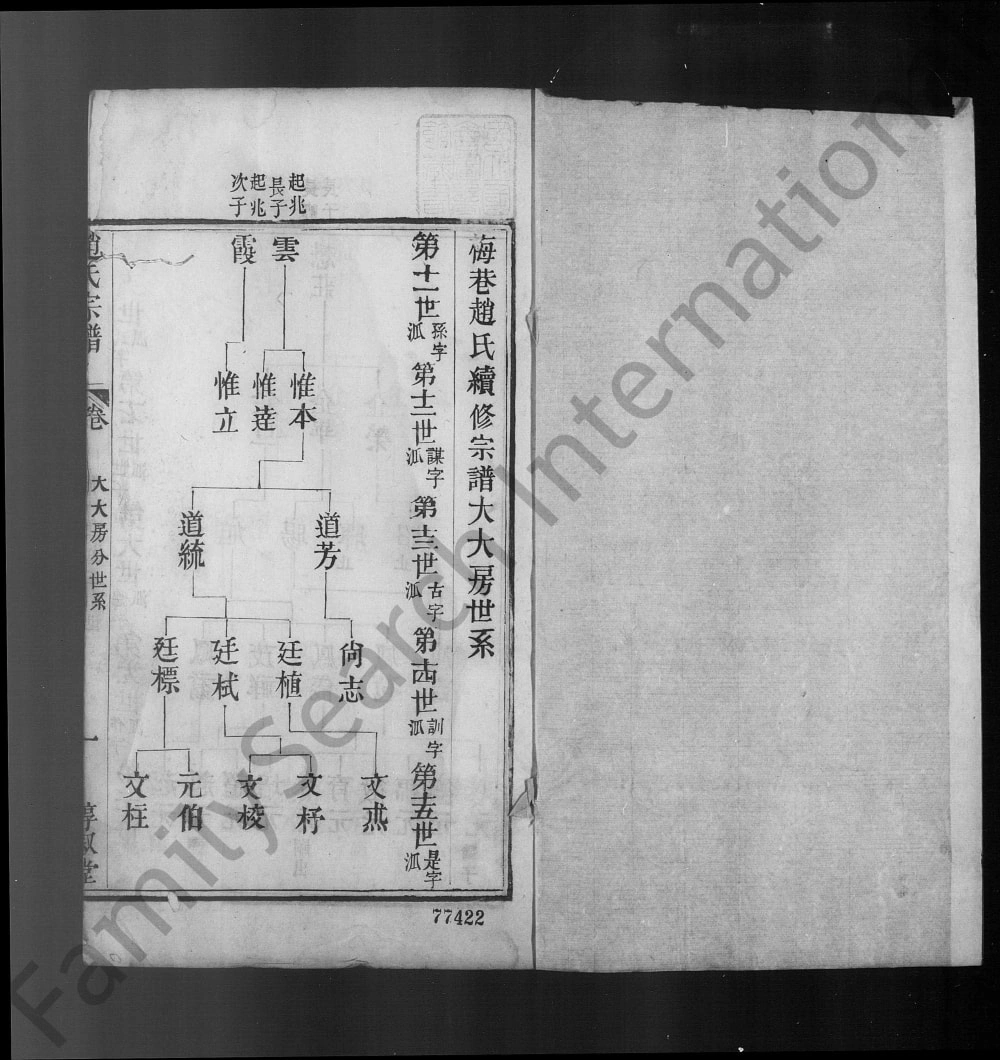 海巷趙氏續修宗譜大大房世系
第十一世 孫字派 第十二世 謀字派 第十三世 古字派 第十四世 訓字派 第十五世 是字派
起兆長子
起兆次子
雲
霞
惟本
惟達
惟立
道芳
道統
尙志
廷植
廷栻
廷標
文燕
文杼
文棱
元伯
文柱
趙氏宗譜
卷一
大大房分世系
一
淳叙堂
77422
FamilySearch International